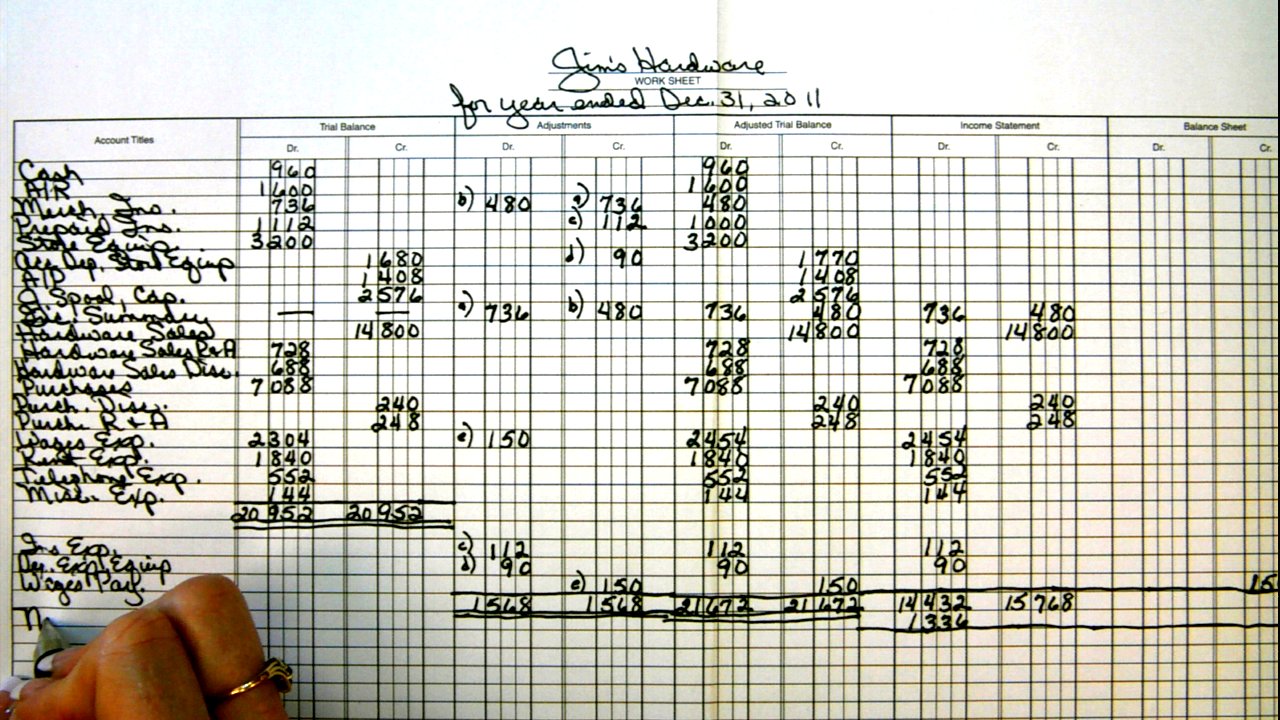 Jim's Hardware
WORK SHEET
for year ended Dec. 31, 2011
Account Titles Trial Balance Adjustments Adjusted Trial Balance Income Statement Balance Sheet
Dr. Cr. Dr. Cr. Dr. Cr. Dr. Cr. Dr. Cr.
Cash 960 960
A/R 1600 1600
Merch. Ins. 736 b) 480 a) 736 480
Prepaid Ins. 1112 c) 112 1000
Store Equip. 3200 3200
Acc. Dep. Store Equip 1680 d) 90 1770
A/P 1408 1408
J. Spool, Cap. 2576 2576
Inc. Summary — — a) 736 b) 480 736 480 736 480
Hardware Sales 14800 14800 14800
Hardware Sales R&A 728 728 728
Hardware Sales Disc. 688 688 688
Purchases 7088 7088 7088
Purch. Disc. 240 240 240
Purch. R & A 248 248 248
Wages Exp. 2304 e) 150 2454 2454
Rent Exp. 1840 1840 1840
Telephone Exp. 552 552 552
Misc. Exp. 144 144 144
20952 20952
Ins Exp. c) 112 112 112
Dep. Exp. Equip d) 90 90 90
Wages Pay. e) 150 150 15
1568 1568 21672 21672 14432 15768
N 1336